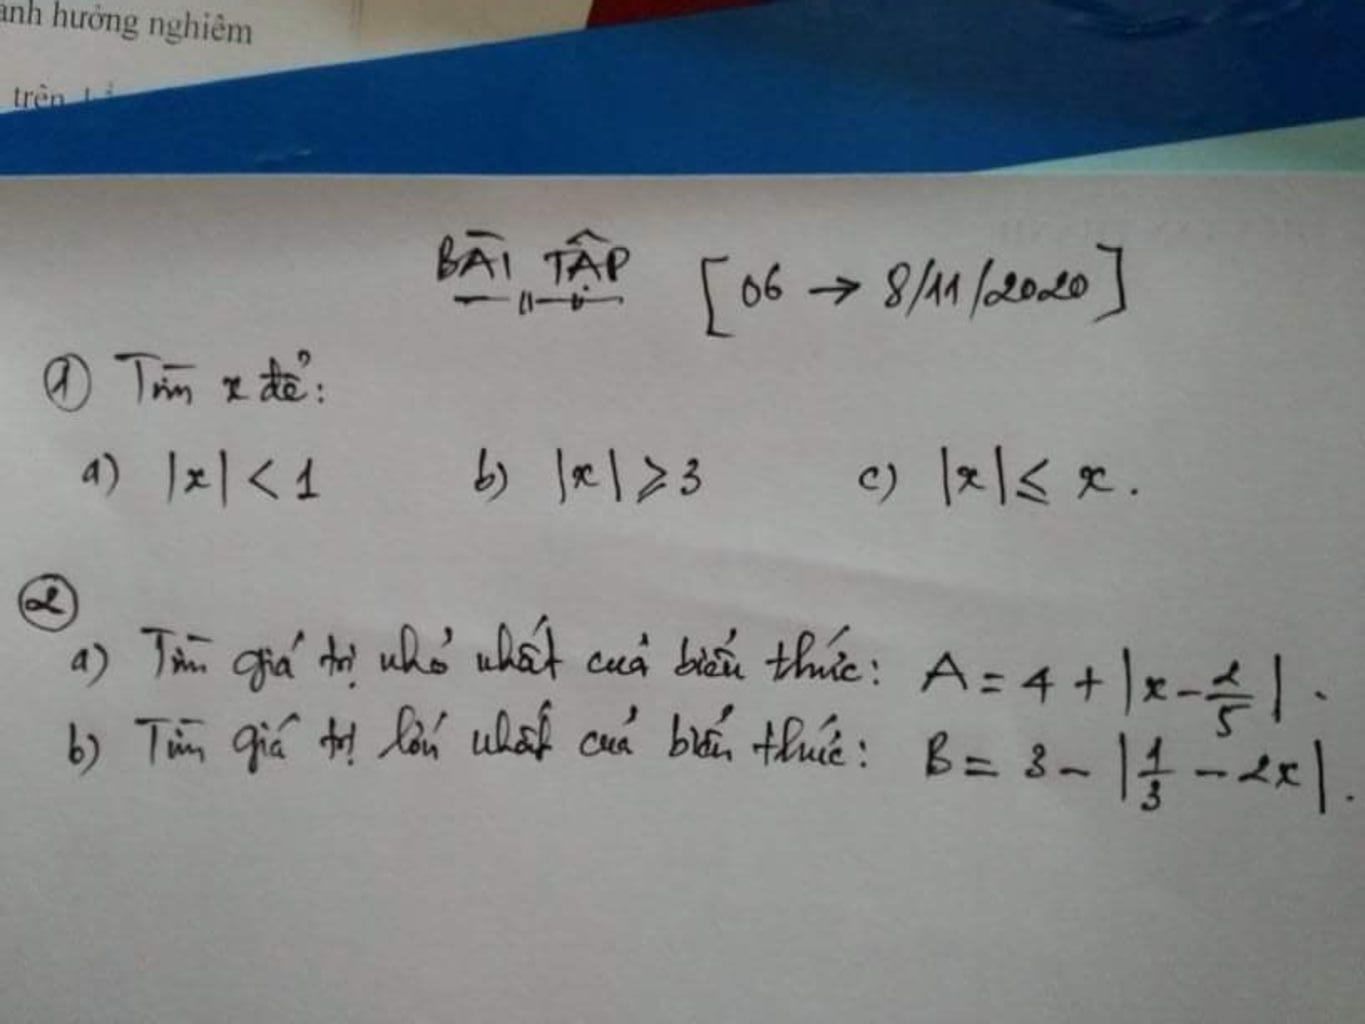 anh hưởng nghiêm
trên
BÀI TẬP [06 → 8/11/2020]
① Tìm x để:
a) |x| < 1 b) |x| ⩾ 3 c) |x| ≤ x.
②
a) Tìm giá trị nhỏ nhất của biểu thức: A = 4 + |x - 2/5|.
b) Tìm giá trị lớn nhất của biểu thức: B = 3 - |1/3 - 2x|.